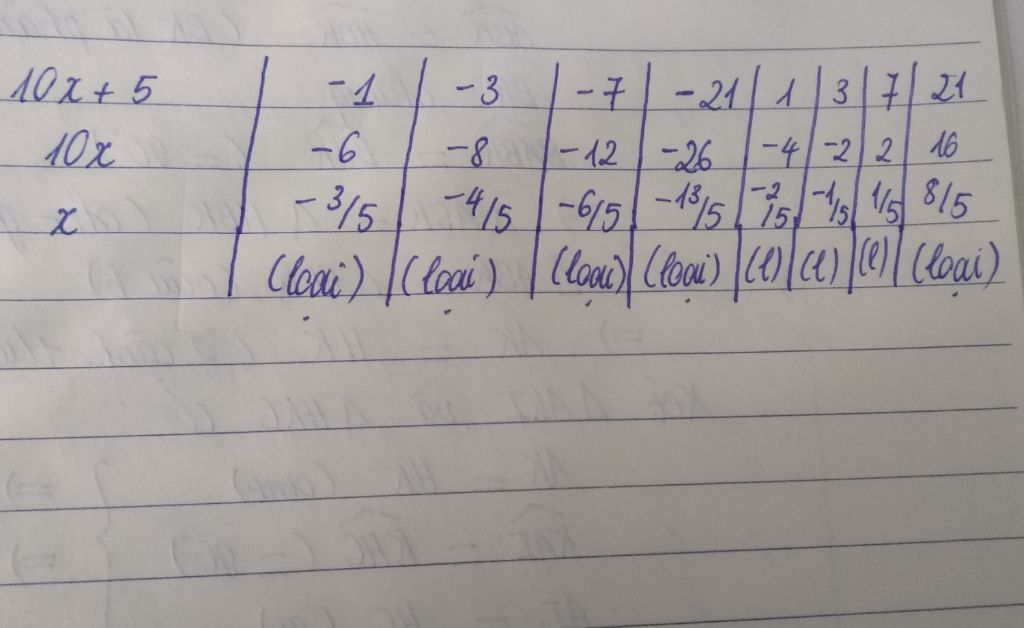 10x + 5 -1 -3 -7 -21 1 3 7 21
10x -6 -8 -12 -26 -4 -2 2 16
x -3/5 -4/5 -6/5 -13/5 -2/5 -1/5 1/5 8/5
(loại) (loại) (loại) (loại) (l) (l) (l) (loại)